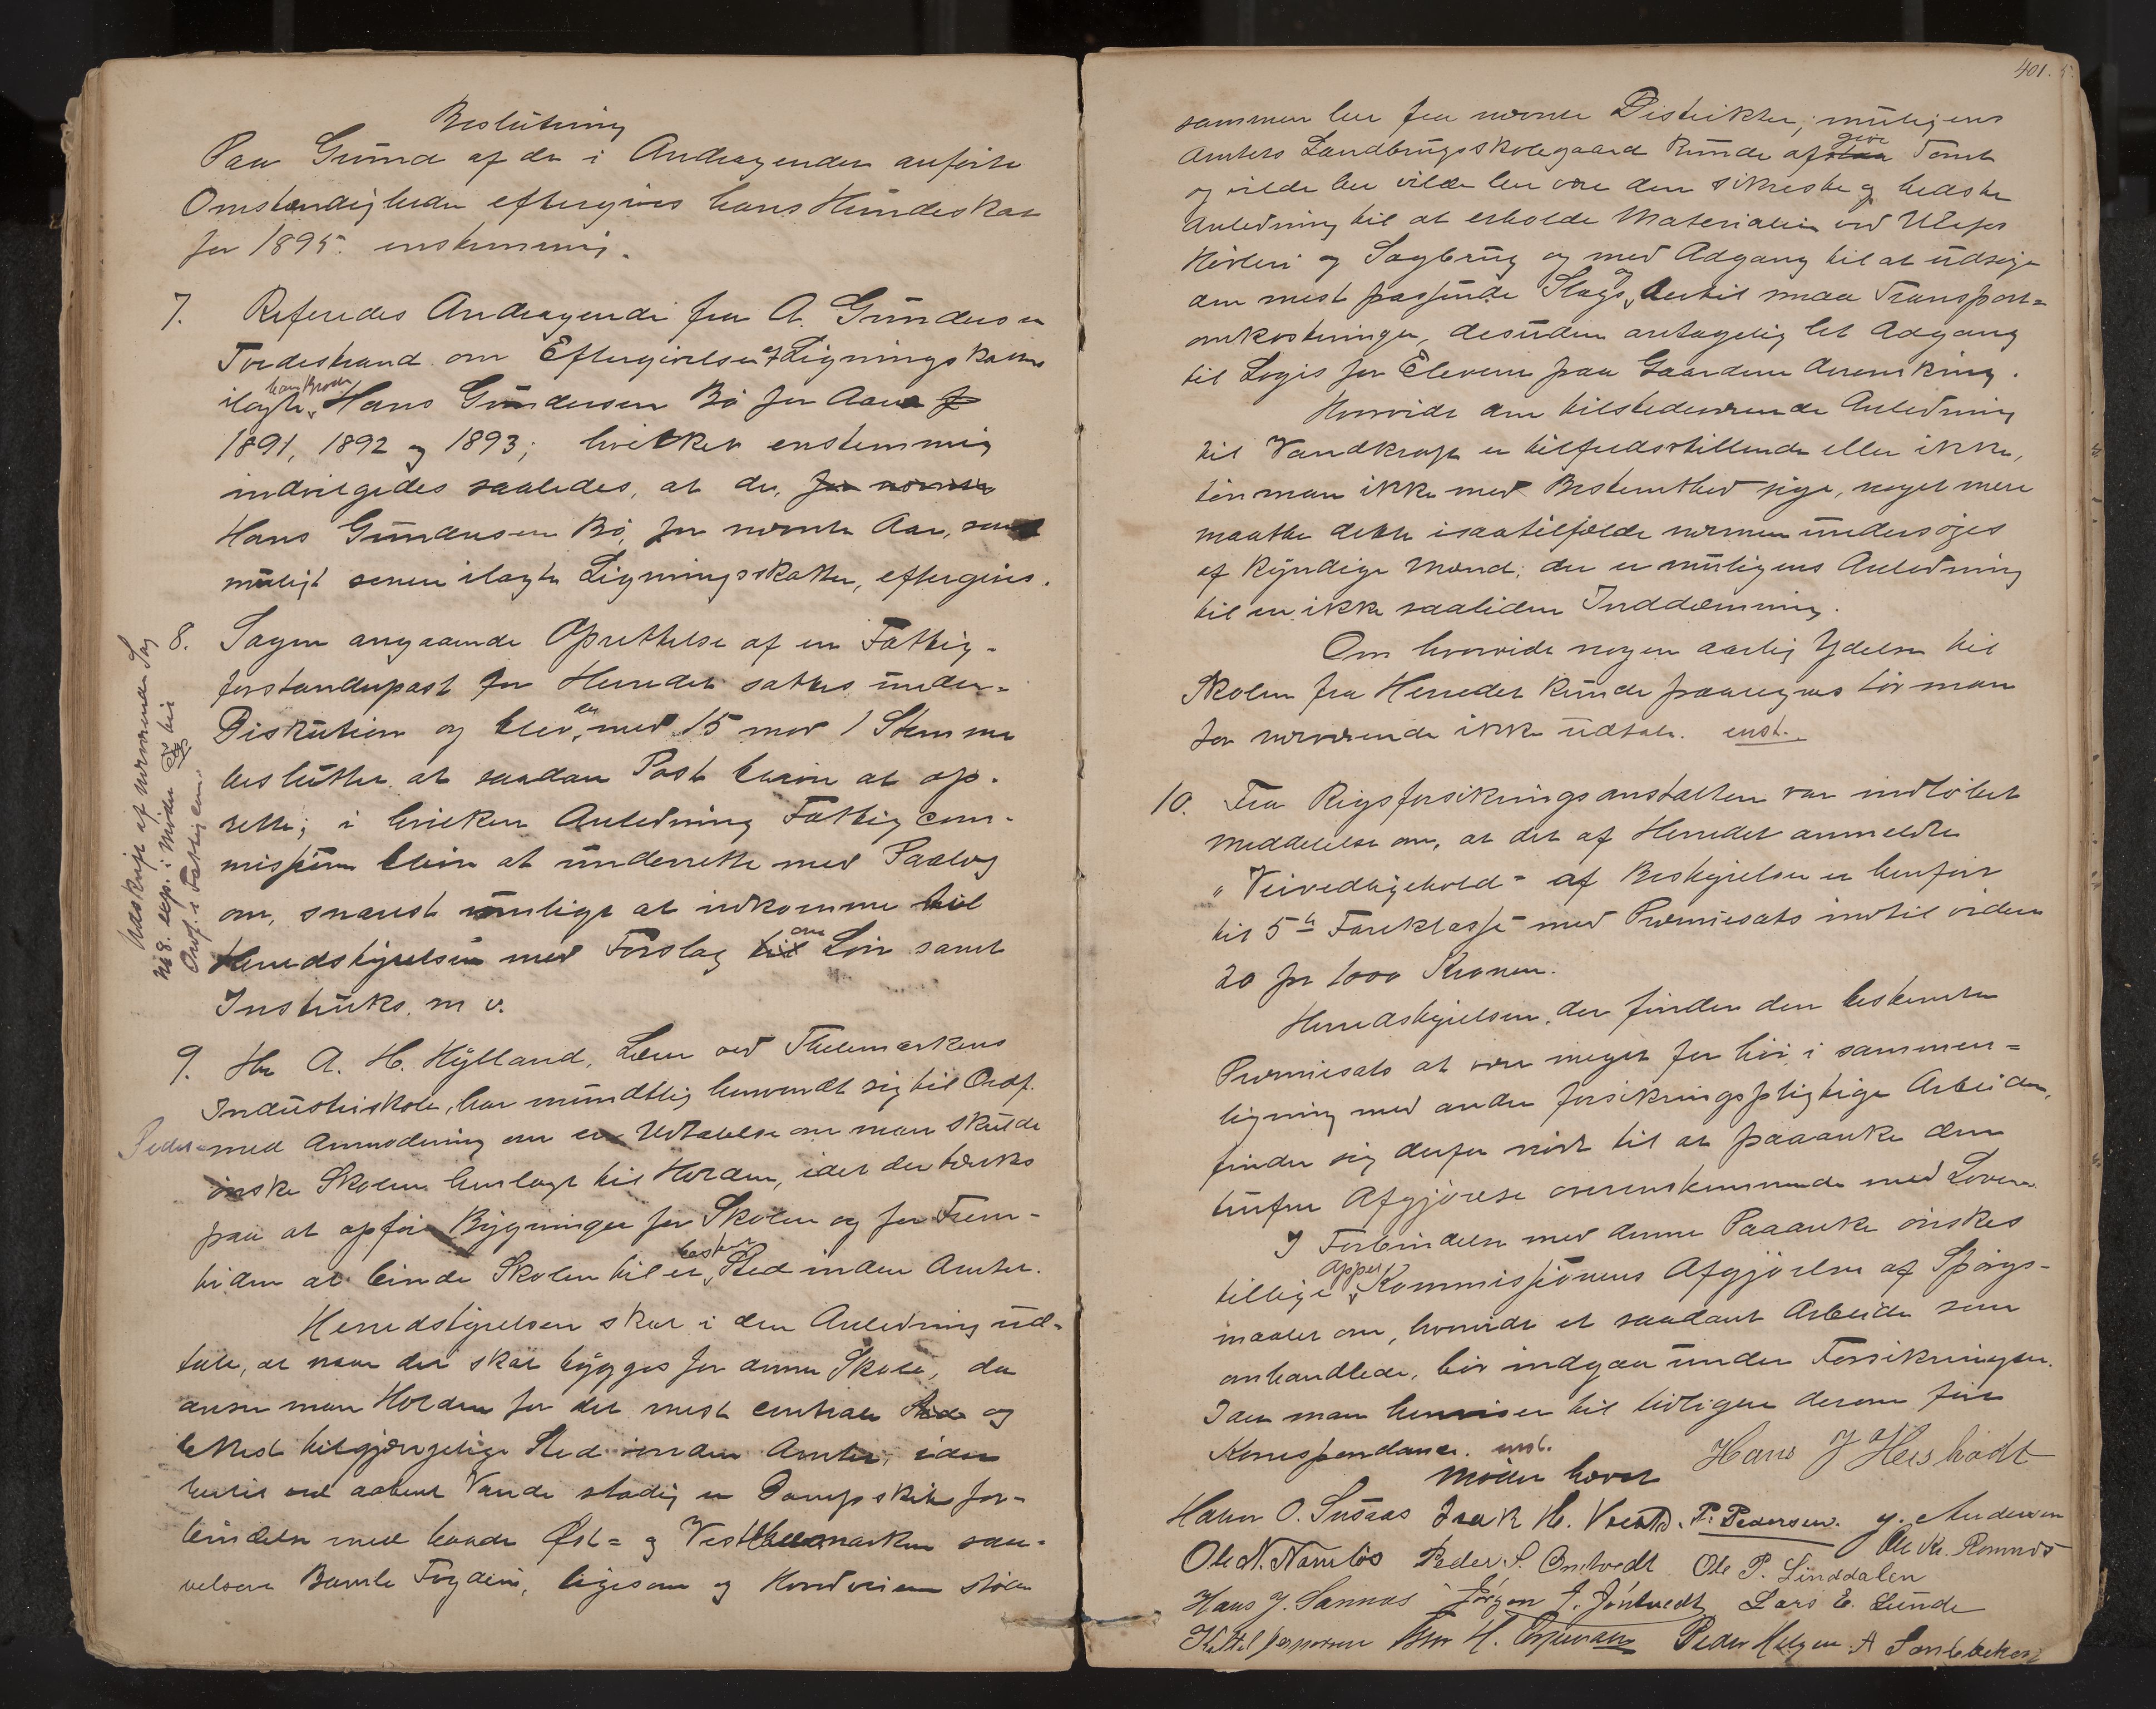 Beslutning
Paa Grund af de i Andragenden anførte
Omstændigheder eftergives hans Hundeskat
for 1895. enstemmig.
7. Refereredes Andragende fra A. Gundersen
Tordestrand om Eftergivelse af Ligningsskatten
ilagte hans Broder Hans Gundersen Bø for Aarene
1891, 1892 og 1893; hvilket enstemmig
indvilgedes saaledes, at de, for nævnte
Hans Gundersen Bø, for nævnte Aar, samt
muligt senere ilagte Ligningsskatter, eftergives.
8. Sagen angaaende Oprettelse af en Fattig-
forstanderpost for Herredet sattes under
Diskution og blev det med 15 mod 1 Stemme
besluttet at saadan Post bliver at op-
rette; i hvilken Anledning Fattigcom-
missionen bliver at underrette med Paalæg
om, snarest muligt at indkomme til
Herredstyrelsen med Forslag til om Løn samt
Instruks. m v.
Udskrift af nærværende Sag
No 8. exp. i Mødet til
Ordf. i Fattigkom.
9. Hr A. H. Kylland, Lærer ved Thelemarkens
Industriskole, har mundtlig henvendt sig til Ordf.
med Anmodning om en Udtalelse om man skulde
ønske Skolen henlagt til Holden, idet der tænkes
paa at opføre Bygninger for Skolen og for Frem-
tiden at binde Skolen til et bestemt Sted inden Amtet.
Herredstyrelsen skal i den Anledning ud-
tale, at naar der skal bygges for denne Skole, da
anser man Holden for det mest centrale Sted og
lettest tilgjængelige Sted inden Amtet, idet
hertil ved aabent Vande stadig er Dampskibsfor-
bindelse med baade Øst- og Vestthelemarken saa-
velsom Bamle Fogderi, ligesom og Hovedveiene støder
401.
sammen her fra nævnte Distrikter; muligens
Amtets Landbrugsskolegaard kunde afstaa give Tomt
og vilde her vilde her være den sikreste og bedste
Anledning til at erholde Materialier ved Ulefos
Høvleri og Sagbrug og med Adgang til at udsøge
den mest passende Slags, og dertil smaa Transport-
omkostninger, desuden antagelig let Adgang
til Logis for Eleverne paa Gaardene deromkring.
Hvorvidt den tilstedeværende Anledning
til Vandkraft er tilfredsstillende eller ikke,
tør man ikke med Bestemthed sige, noget mere
maatte dette isaatilfælde nærmere undersøges
af kyndige Mænd; der er muligens Anledning
til en ikke saaliden Inddæmning.
Om hvorvidt nogen aarlig Ydelse til
Skolen fra Herredet kunde paaregnes tør man
for nærværende ikke udtale. enst.
10. Fra Rigsforsikringsanstalten var indløbet
Meddelelse om, at det af Herredet anmeldte
"Veivedligehold" af Bestyrelsen er henført
til 5te Fareklasse med Præmiesats indtil videre
20 pr 1000 Kroner.
Herredstyrelsen, der finder den bestemte
Præmiesats at være meget for høi i sammen-
ligning med andre forsikringspligtige Arbeider,
finder sig derfor nødt til at paaanke den
trufne Afgjørelse overensstemmende med Loven.
I Forbindelse med denne Paaanke ønskes
tillige Appel Kommissionens Afgjørelse af Spørgs-
maalet om, hvorvidt et saadant Arbeide som
omhandlede, bør indgaa under Forsikringen.
Idet man henviser til tidligere derom ført
Korrespondance. enst.
Mødet hævet
Hans J Hersbødt
Halvor O. Susaas Isak H. Vreald. P. Pedersen. G. Andersen
Ole N. Namløs Peder S. Omtvedt Ole P. Linddalen
Ole Kr. Romnes
Hans J. Sannes Jørgen J. Jøntvedt Lars E. Lunde
Kittil Jespersen H. Espersen Peder Helgen A Sønbbakken